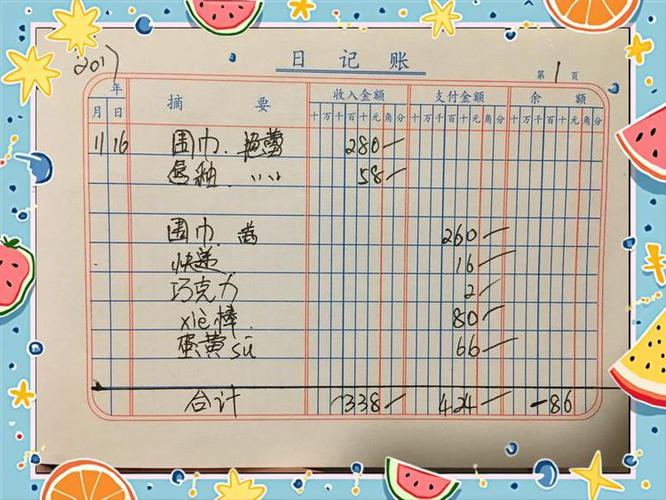 日记账
2017 年 第1页
月 日 摘要 收入金额 支付金额 余额
十万千百十元角分 十万千百十元角分 十万千百十元角分
11 16 围巾. 280—
柚. 〃〃 58—
围巾. 260—
快递 16—
巧克力 2—
xiè棒. 80—
蛋黄sū 66—
合计 338— 424— -86